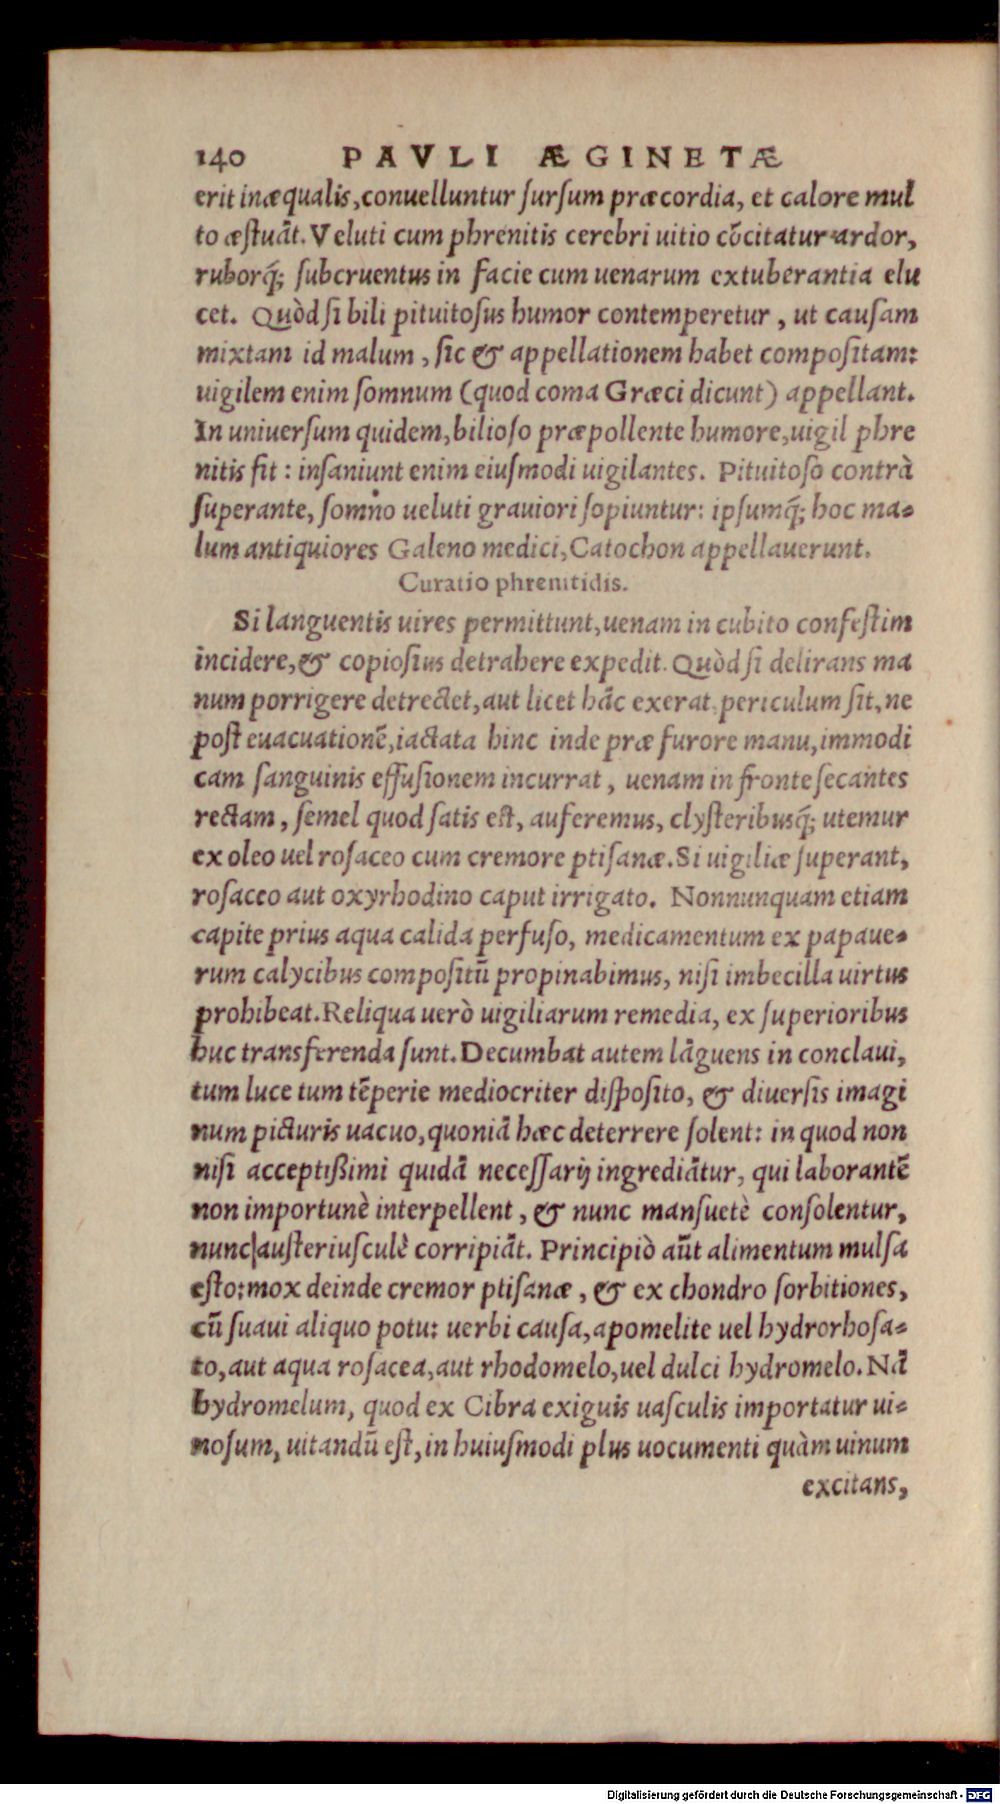 140 PAVLI ÆGINETÆ
erit inæqualis, conuelluntur sursum præcordia, et calore mul
to æstuāt. Veluti cum phrenitis cerebri uitio cōcitatur ardor,
ruborq́; subcruentus in facie cum uenarum extuberantia elu
cet. Quòd si bili pituitosus humor contemperetur, ut causam
mixtam id malum, sic & appellationem habet compositam:
uigilem enim somnum (quod coma Græci dicunt) appellant.
In uniuersum quidem, bilioso præpollente humore, uigil phre
nitis fit: insaniunt enim eiusmodi uigilantes. Pituitoso contrà
superante, somno ueluti grauiori sopiuntur: ipsumq́; hoc ma-
lum antiquiores Galeno medici, Catochon appellauerunt.
Curatio phrenitidis.
Si languentis uires permittunt, uenam in cubito confestim
incidere, & copiosius detrahere expedit. Quòd si delirans ma
num porrigere detrectet, aut licet hāc exerat, periculum sit, ne
post euacuationē, iactata hinc inde præ furore manu, immodi
cam sanguinis effusionem incurrat, uenam in fronte secantes
rectam, semel quod satis est, auferemus, clysteribusq́; utemur
ex oleo uel rosaceo cum cremore ptisanæ. Si uigiliæ superant,
rosaceo aut oxyrhodino caput irrigato. Nonnunquam etiam
capite prius aqua calida perfuso, medicamentum ex papaue-
rum calycibus compositū propinabimus, nisi imbecilla uirtus
prohibeat. Reliqua uerò uigiliarum remedia, ex superioribus
huc transferenda sunt. Decumbat autem lāguens in conclaui,
tum luce tum tēperie mediocriter disposito, & diuersis imagi
num picturis uacuo, quoniā hæc deterrere solent: in quod non
nisi acceptißimi quidā necessarij ingrediātur, qui laborantē
non importunè interpellent, & nunc mansuetè consolentur,
nunc austeriusculè corripiāt. Principiò aūt alimentum mulsa
esto: mox deinde cremor ptisanæ, & ex chondro sorbitiones,
cū suaui aliquo potu: uerbi causa, apomelite uel hydrorhosa-
to, aut aqua rosacea, aut rhodomelo, uel dulci hydromelo. Nā
hydromelum, quod ex Cibra exiguis uasculis importatur ui-
nosum, uitandū est, in huiusmodi plus uocumenti quàm uinum
excitans,
Digitalisierung gefördert durch die Deutsche Forschungsgemeinschaft - DFG